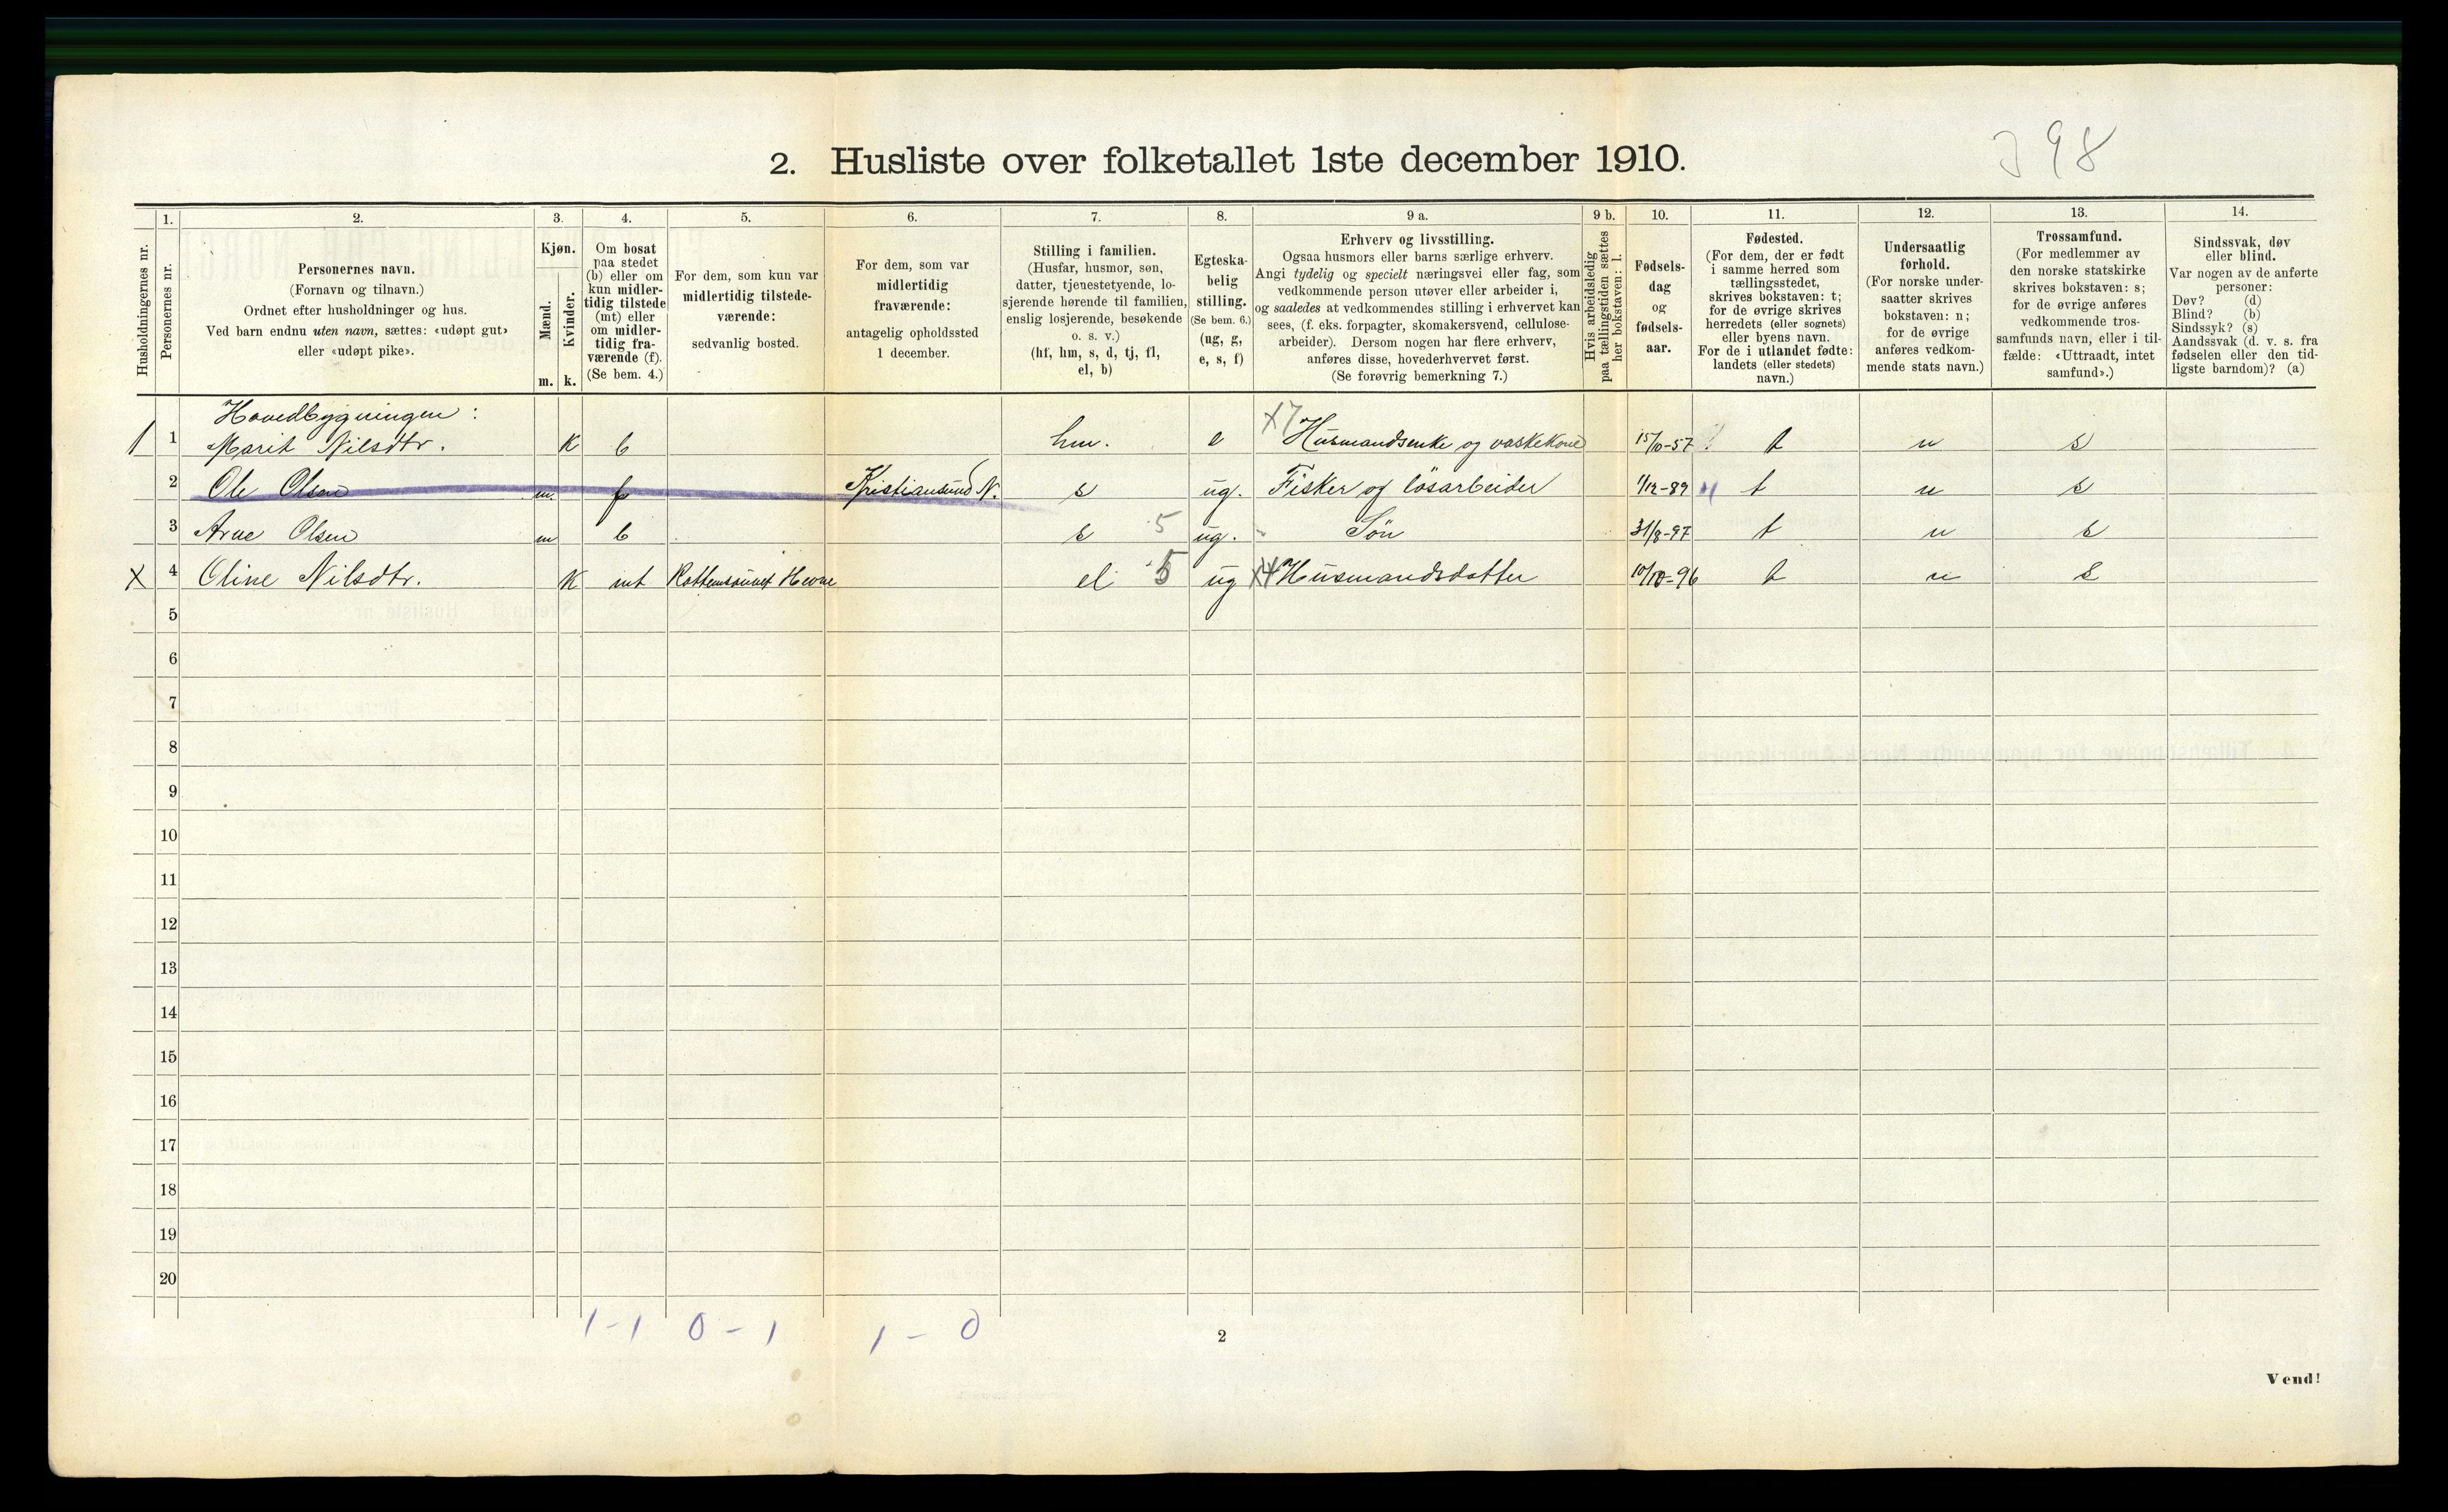 398
2. Husliste over folketallet 1ste december 1910.
Husholdningernes nr.
1.
Personernes nr.
2.
Personernes navn.
(Fornavn og tilnavn.)
Ordnet efter husholdninger og hus.
Ved barn endnu uten navn, sættes: «udøpt gut»
eller «udøpt pike».
3.
Kjøn.
Mænd.
Kvinder.
m. k.
4.
Om bosat
paa stedet
(b) eller om
kun midler-
tidig tilstede
(mt) eller
om midler-
tidig fra-
værende (f).
(Se bem. 4.)
5.
For dem, som kun var
midlertidig tilstede-
værende:
sedvanlig bosted.
6.
For dem, som var
midlertidig
fraværende:
antagelig opholdssted
1 december.
7.
Stilling i familien.
(Husfar, husmor, søn,
datter, tjenestetyende, lo-
sjerende hørende til familien,
enslig losjerende, besøkende
o. s. v.)
(hf, hm, s, d, tj, fl,
el, b)
8.
Egteska-
belig
stilling.
(Se bem. 6.)
(ug, g,
e, s, f)
9 a.
Erhverv og livsstilling.
Ogsaa husmors eller barns særlige erhverv.
Angi tydelig og specielt næringsvei eller fag, som
vedkommende person utøver eller arbeider i,
og saaledes at vedkommendes stilling i erhvervet kan
sees, (f. eks. forpagter, skomakersvend, cellulose-
arbeider). Dersom nogen har flere erhverv,
anføres disse, hovederhvervet først.
(Se forøvrig bemerkning 7.)
9 b.
Hvis arbeidsledig
paa tællingstiden sættes
her bokstaven: l.
10.
Fødsels-
dag
og
fødsels-
aar.
11.
Fødested.
(For dem, der er født
i samme herred som
tællingsstedet,
skrives bokstaven: t;
for de øvrige skrives
herredets (eller sognets)
eller byens navn.
For de i utlandet fødte:
landets (eller stedets)
navn.)
12.
Undersaatlig
forhold.
(For norske under-
saatter skrives
bokstaven: n;
for de øvrige
anføres vedkom-
mende stats navn.)
13.
Trossamfund.
(For medlemmer av
den norske statskirke
skrives bokstaven: s;
for de øvrige anføres
vedkommende tros-
samfunds navn, eller i til-
fælde: «Uttraadt, intet
samfund».)
14.
Sindssvak, døv
eller blind.
Var nogen av de anførte
personer:
Døv? (d)
Blind? (b)
Sindssyk? (s)
Aandssvak (d. v. s. fra
fødselen eller den tid-
ligste barndom)? (a)
Hovedbygningen:
1 1 Marit Nilsdtr. k b hm. e X7 Husmandsenke og vaskekone 15/10-57 t n s
2 Ole Olsen m f Kristiansund N. s ug. Fisker og løsarbeider 1/12-89 t n s
3 Arne Olsen m b s 5 ug. Søn 31/8-97 t n s
X 4 Oline Nilsdtr. k mt Hevne el 5 ug X4 Husmandsdatter 10/10-96 t n s
5
6
7
8
9
10
11
12
13
14
15
16
17
18
19
20
1-1 0-1 1-0
2
Vend!